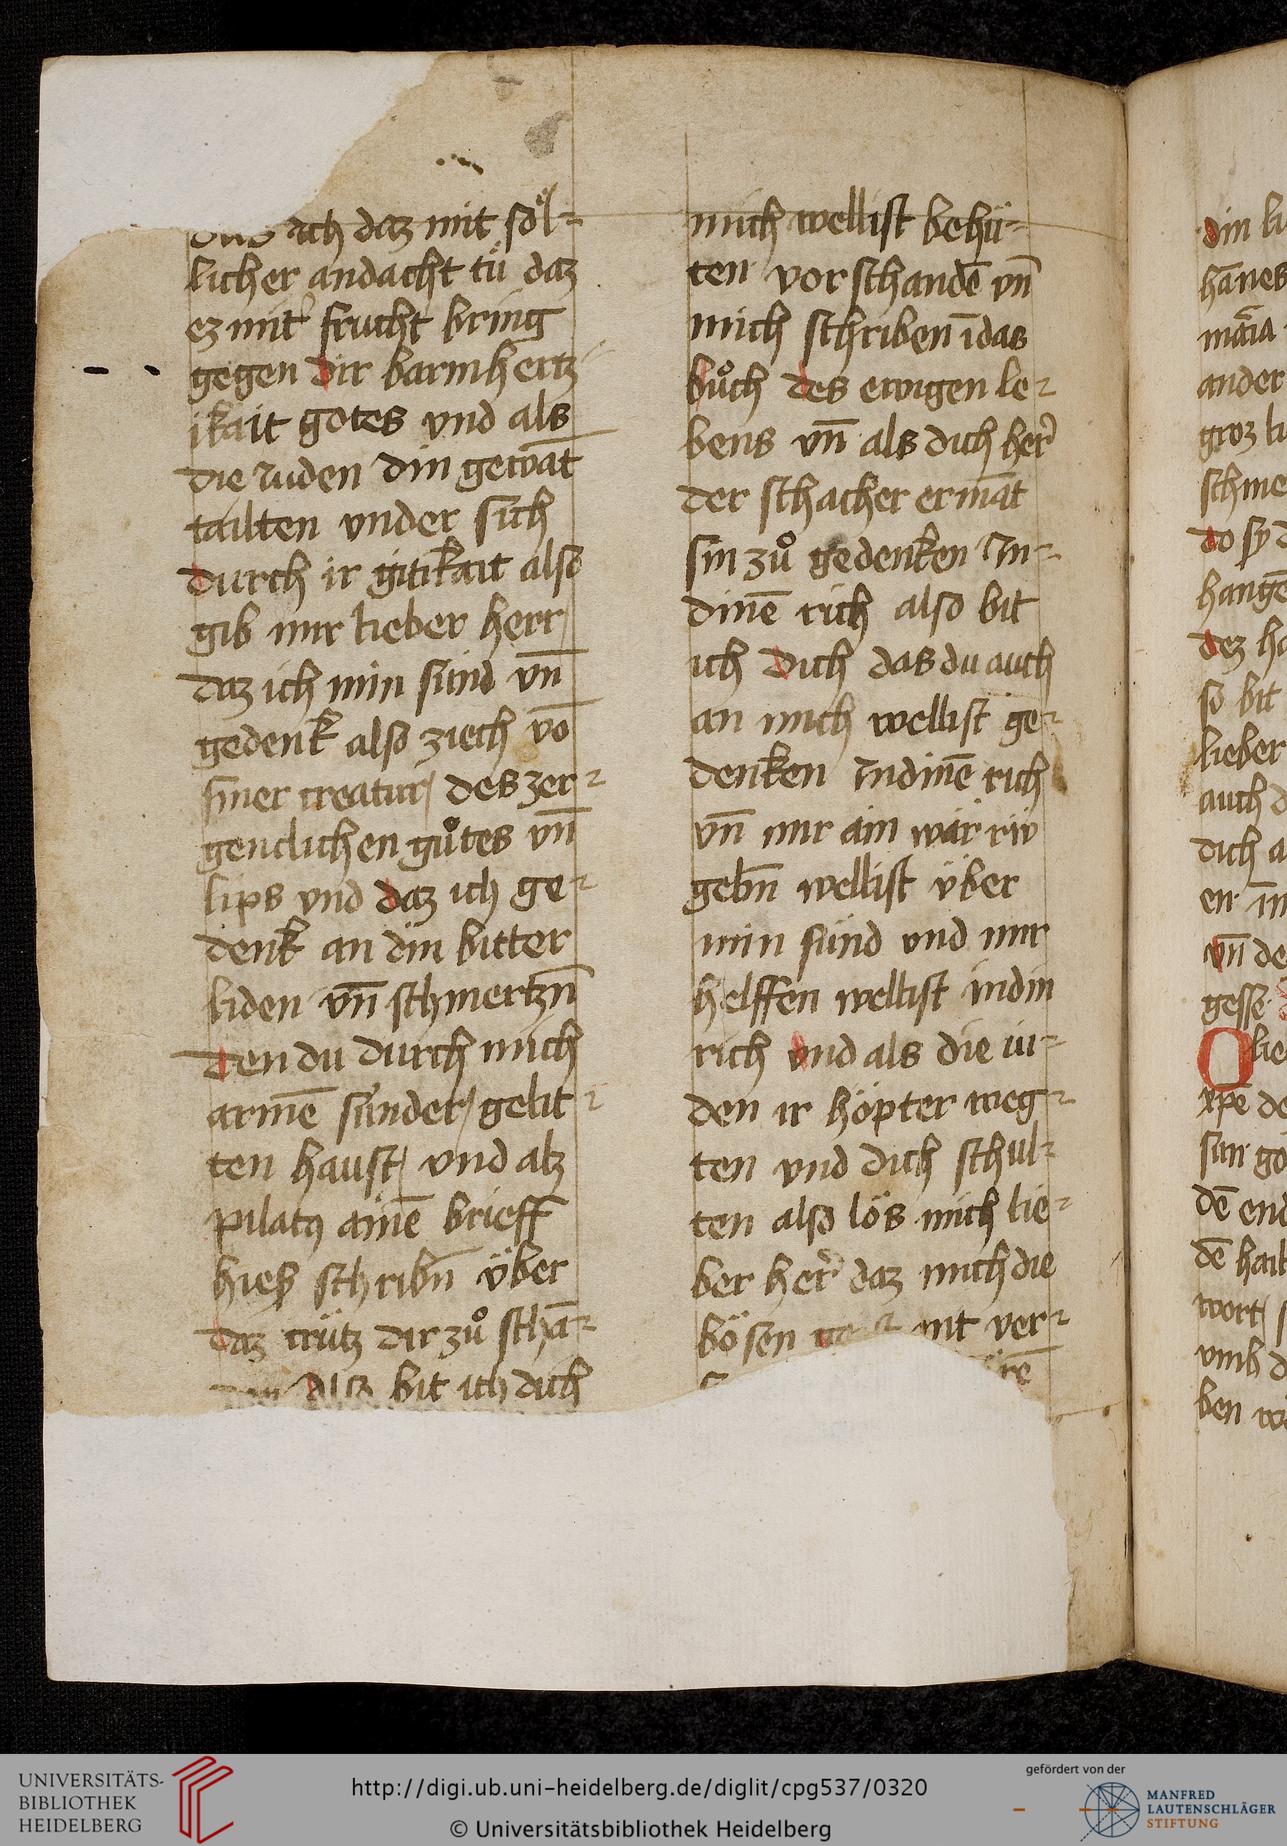 ich daz mit söl-
licher andacht tuͤ daz
ez mit frucht bring
gegen dir barmhertz-
ikait gotes vnd als
die iuden din gewāt
tailten vnder sich
durch ir gitikait also
gib mir lieber herr
daz ich min sünd vn̄
gedenk also ziech vō
siner creatur des zer-
genclichen guͦtes vn̄
lips vnd daz ich ge-
denk an din bitter
liden vn̄ schmertzn̄
den du durch mich
armē sünder gelit-
ten haust vnd alz
pilatꝰ ainē brieff
hieß schribn̄ über
daz crütz dir zuͦ schā-
bit ich dich
mich wellist behü-
ten vor schandē vn̄
mich schriben ī das
buͦch des ewigen le-
bens vn̄ als dich her͛
der schacher ermāt
sin zuͦ gedenken in-
dinē rich also bit
ich dich das du auch
an mich wellist ge-
denken indinē rich
vn̄ mir ain wär riw
gebn̄ wellist über
min sünd vnd mir
helffen wellist indin
rich vnd als die iu-
den ir höpter weg-
ten vnd dich schul-
ten also lös mich lie-
ber her͛ daz mich die
bösen mit ver-
din li
hānes
mā̄ia
ander
groz li
schme
do sy d
hangē
dez ha
so bit
lieber
auch d
dich a
en in
vn̄ de
gesse
O lie
xp̄e de
sun go
dē end
dē hail
wort
vmb d
ben we
UNIVERSITÄTS-
BIBLIOTHEK
HEIDELBERG
http://digi.ub.uni-heidelberg.de/diglit/cpg537/0320
© Universitätsbibliothek Heidelberg
gefördert von der
MANFRED
LAUTENSCHLÄGER
STIFTUNG